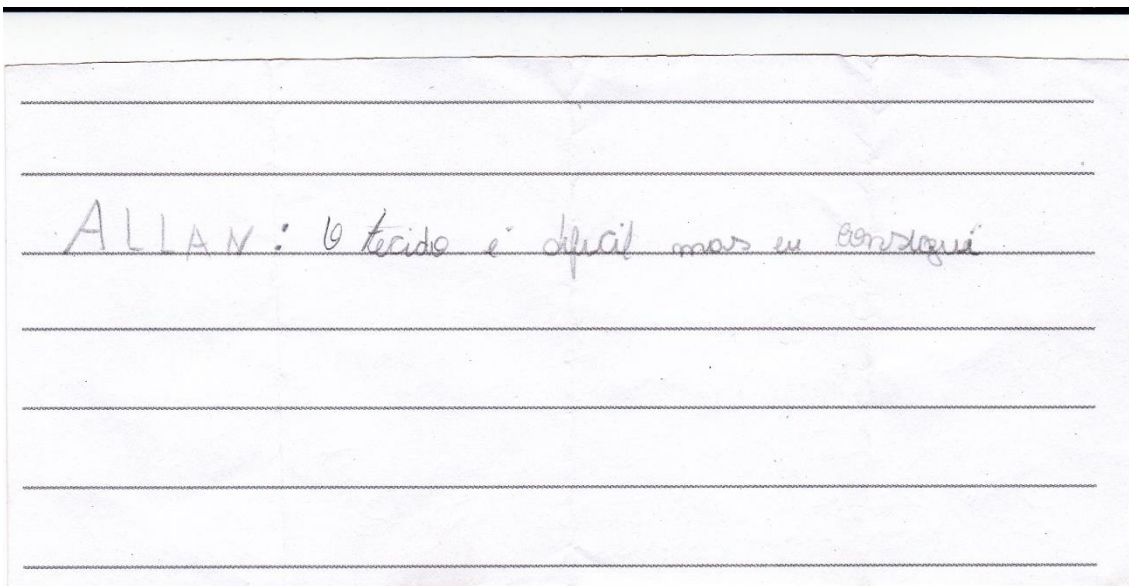 ALLAN: O tecido é dificil mas eu consegui